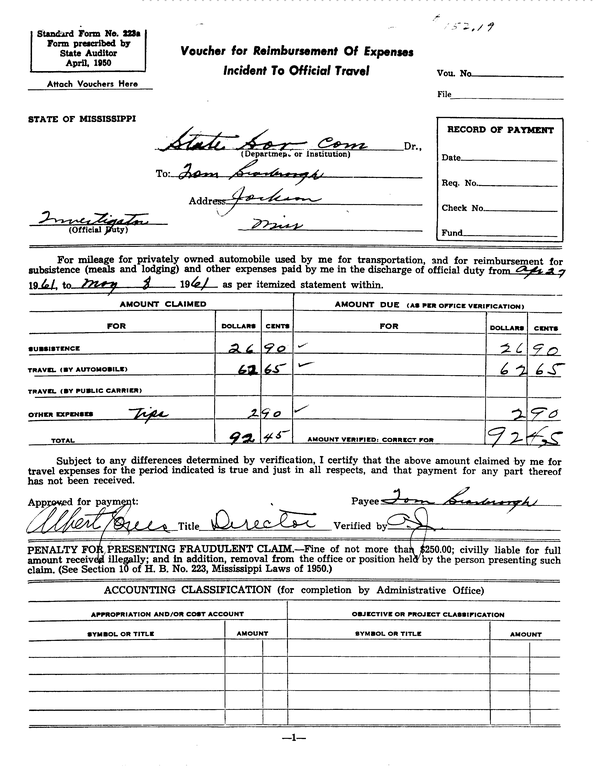 152.19
Standard Form No. 223a
Form prescribed by
State Auditor
April, 1950
Attach Vouchers Here
Voucher for Reimbursement Of Expenses
Incident To Official Travel
Vou. No.
File
STATE OF MISSISSIPPI
State Sov Com Dr.,
(Department or Institution)
To: Tom Scarbrough
Address Jackson
Miss
Investigator
(Official Duty)
RECORD OF PAYMENT
Date
Req. No.
Check No.
Fund
For mileage for privately owned automobile used by me for transportation, and for reimbursement for
subsistence (meals and lodging) and other expenses paid by me in the discharge of official duty from Apr 27
1961, to May 3 1961 as per itemized statement within.
AMOUNT CLAIMED AMOUNT DUE (AS PER OFFICE VERIFICATION)
FOR DOLLARS CENTS FOR DOLLARS CENTS
SUBSISTENCE 26 90 ✓ 26 90
TRAVEL (BY AUTOMOBILE) 62 65 ✓ 62 65
TRAVEL (BY PUBLIC CARRIER)
OTHER EXPENSES Tips 2 90 ✓ 2 90
TOTAL 92 45 AMOUNT VERIFIED; CORRECT FOR 92 45
Subject to any differences determined by verification, I certify that the above amount claimed by me for
travel expenses for the period indicated is true and just in all respects, and that payment for any part thereof
has not been received.
Approved for payment: Payee Tom Scarbrough
Albert Jones Title Director Verified by
PENALTY FOR PRESENTING FRAUDULENT CLAIM.—Fine of not more than $250.00; civilly liable for full
amount received illegally; and in addition, removal from the office or position held by the person presenting such
claim. (See Section 10 of H. B. No. 223, Mississippi Laws of 1950.)
ACCOUNTING CLASSIFICATION (for completion by Administrative Office)
APPROPRIATION AND/OR COST ACCOUNT OBJECTIVE OR PROJECT CLASSIFICATION
SYMBOL OR TITLE AMOUNT SYMBOL OR TITLE AMOUNT
—1—